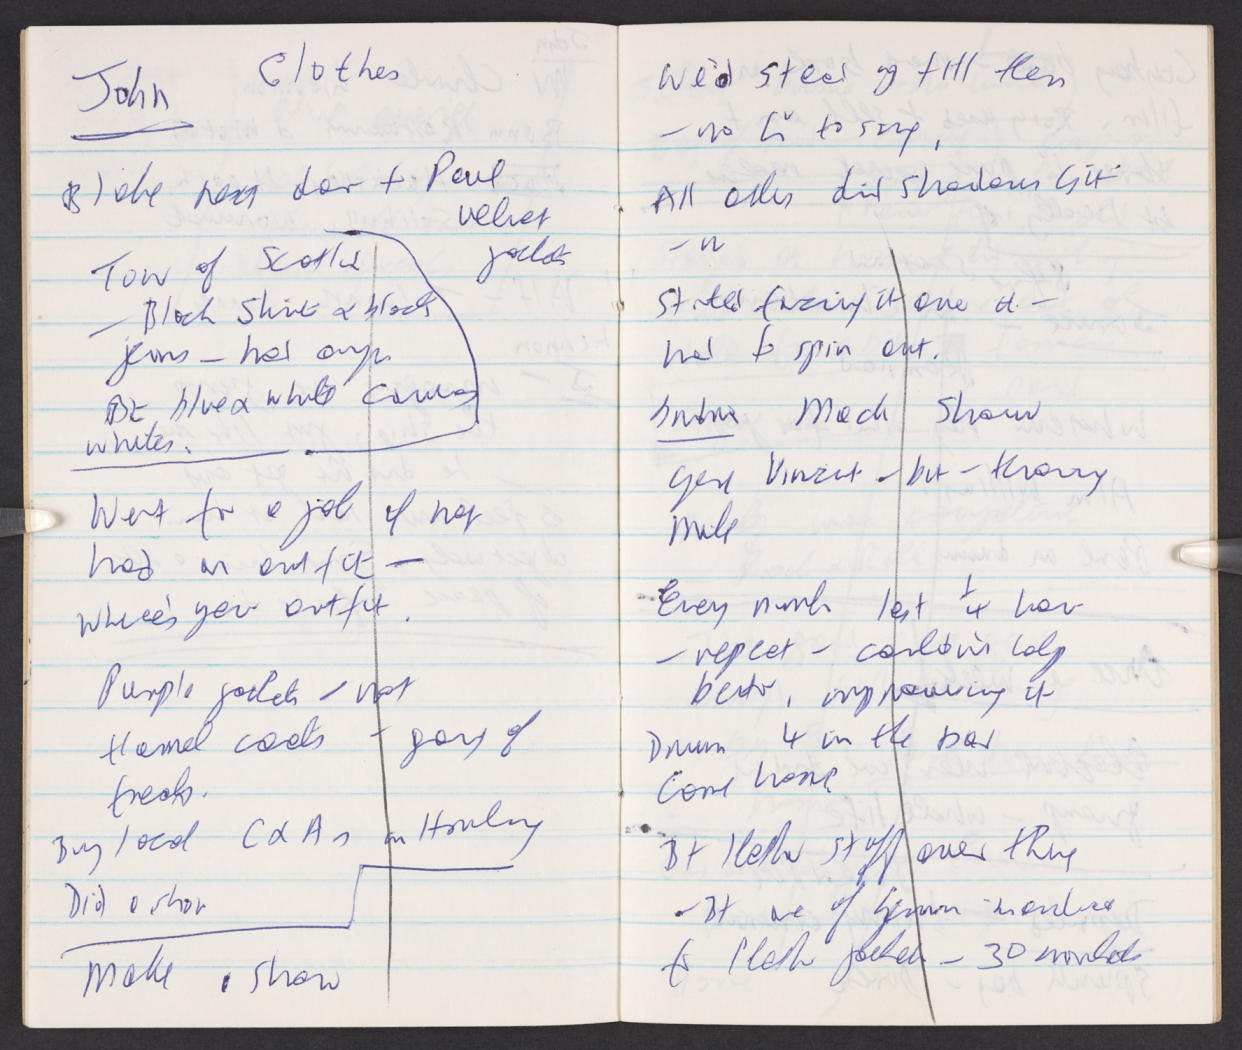 John
Clothes
Bloke next door to Paul
velvet
jackets
Tour of Scotland
- Black Shirts & black
jeans - had
Bt blue & white canvas
whites.
Went for a job if not
had an outfit -
Where's your outfit.
Purple jackets - not
flannel coats - gang of
freaks.
Big local C & As in Hamburg
Did a show
Make a show
We'd steal of till then
- no to sing,
All others did Shadows Git
-
Started it one it -
had to spin out.
Mach Show
Gene Vincent - but -
Mike
Every number last 1/4 hour
- repeat - couldn't help
better, improving it
Drum 4 in the bar
Came home
Bt leather stuff over there
- Bt one of German
for leather jacket - 30 marks